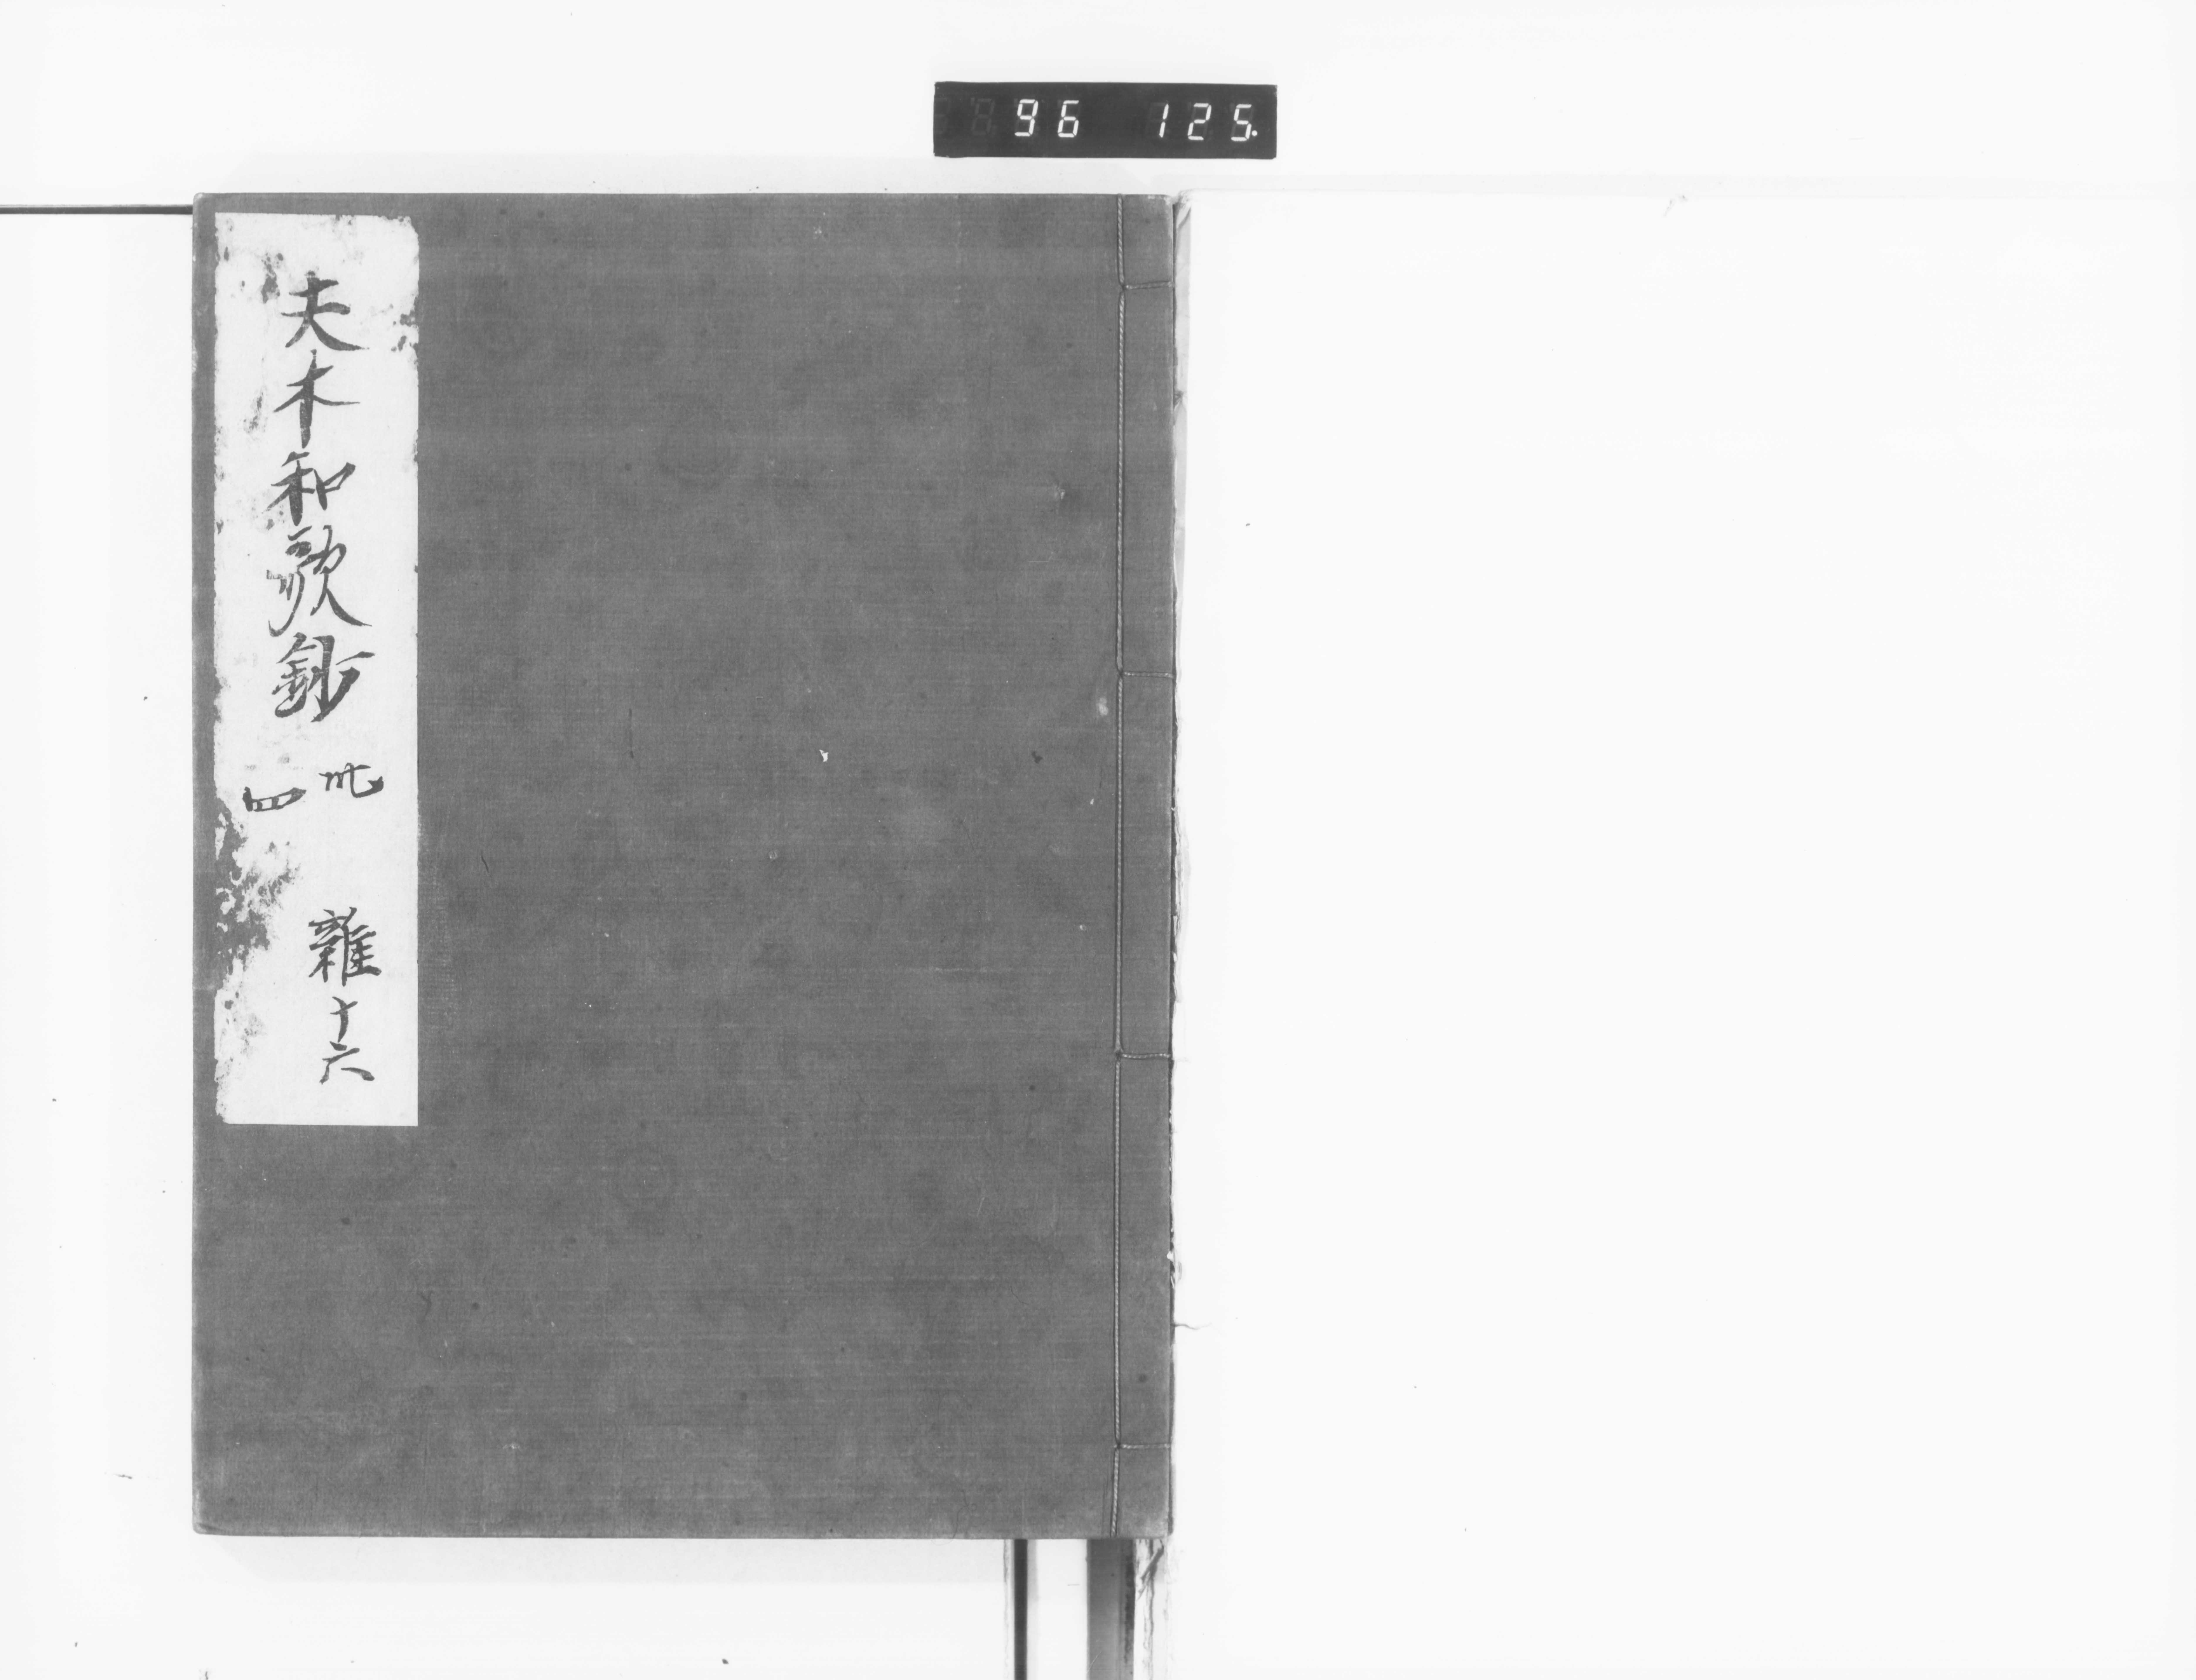 96 125.
夫木和歌鈔 卅四 雜十六